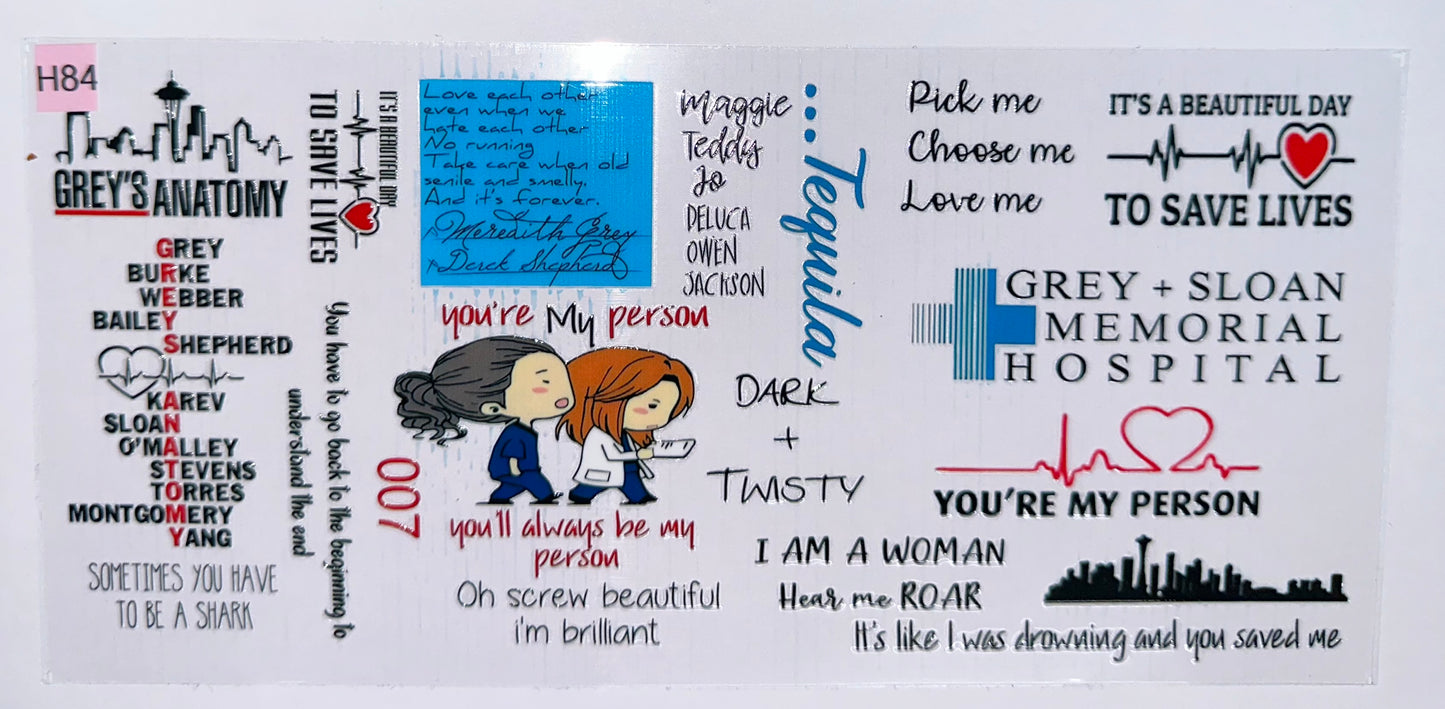 H84
GREY'S ANATOMY
GREY
BURKE
WEBBER
BAILEY
SHEPHERD
KAREV
SLOAN
O'MALLEY
STEVENS
TORRES
MONTGOMERY
YANG
SOMETIMES YOU HAVE
TO BE A SHARK
IT'S A BEAUTIFUL DAY
TO SAVE LIVES
You have to go back to the beginning to
understand the end
007
Love each other
even when we
hate each other
No running
Take care when old
senile and smelly.
And it's forever.
Meredith Grey
Derek Shepherd
you're My person
you'll always be my
person
Oh screw beautiful
i'm brilliant
Maggie
Teddy
Jo
DELUCA
OWEN
JACKSON
...Tequila
DARK
+
TWISTY
Pick me
Choose me
Love me
IT'S A BEAUTIFUL DAY
TO SAVE LIVES
GREY + SLOAN
MEMORIAL
HOSPITAL
YOU'RE MY PERSON
I AM A WOMAN
Hear me ROAR
It's like I was drowning and you saved me